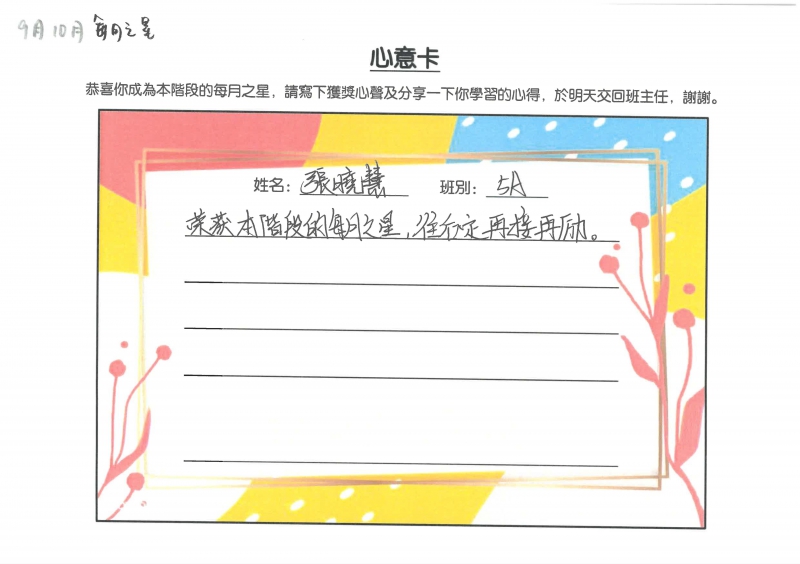 9月10月 每月之星
心意卡
恭喜你成為本階段的每月之星，請寫下獲獎心聲及分享一下你學習的心得，於明天交回班主任，謝謝。
姓名：張曉慧 班別：5A
荣获本階段的每月之星，往后定再接再励。